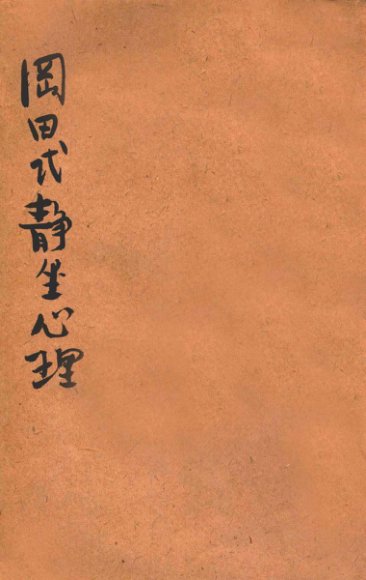 岡田式静坐心理